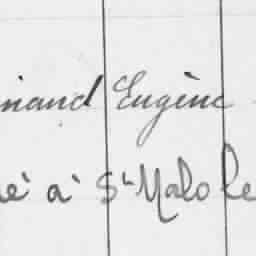 inand Eugène
né à St Malo le